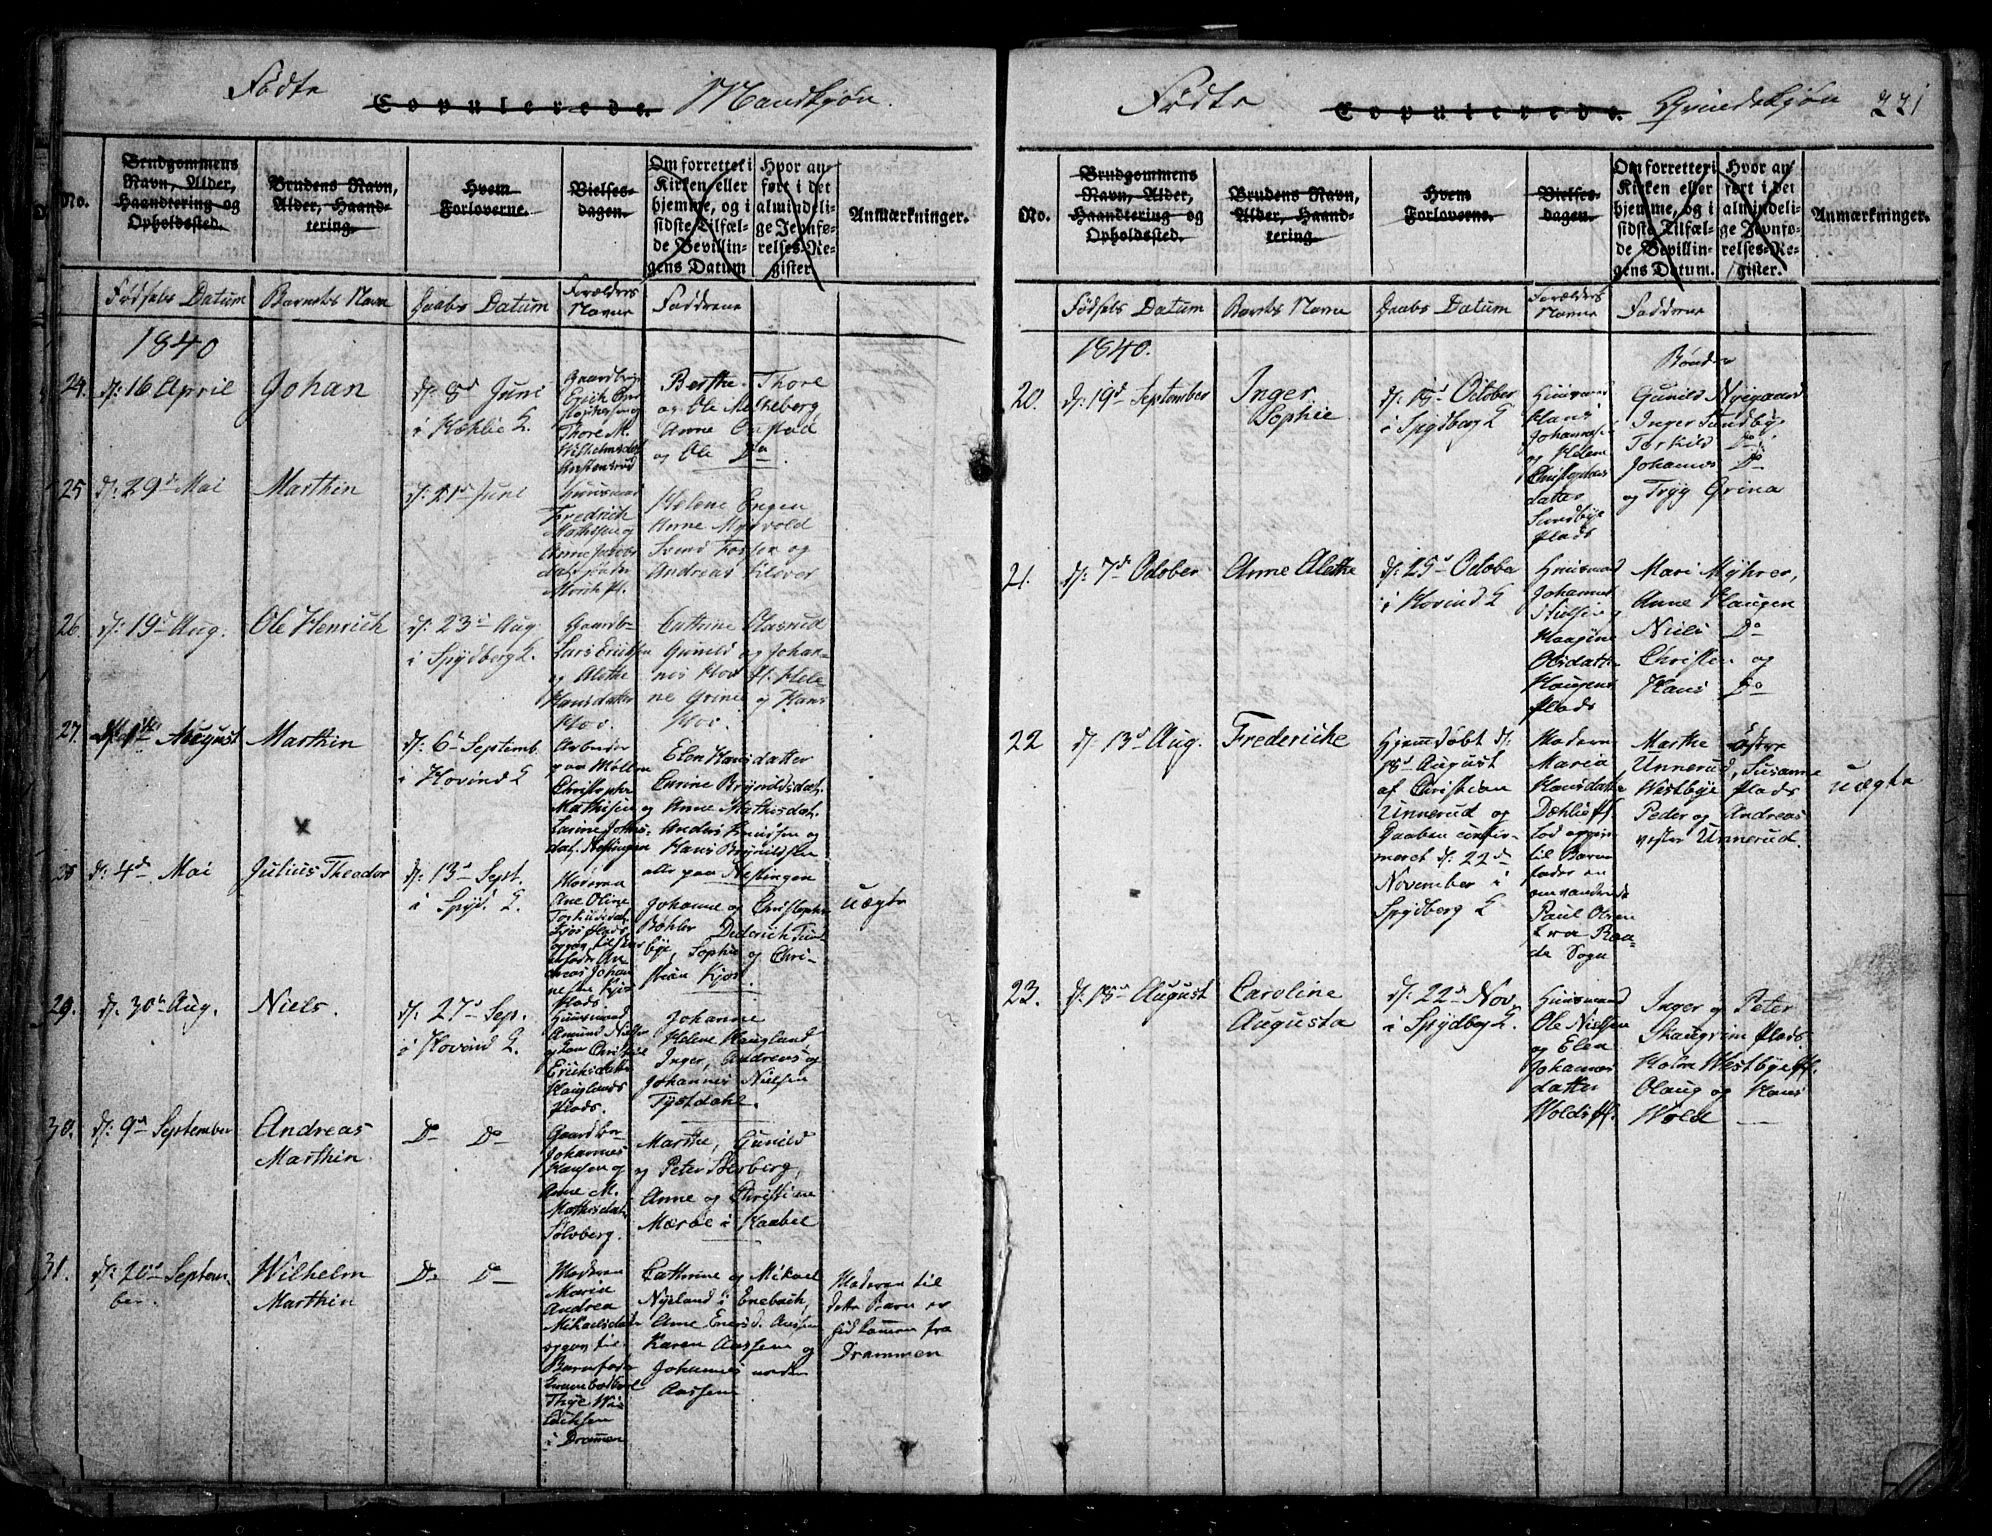 Fødte Copulerede. Mandkjøn.
No.
Brudgommens
Navn, Alder,
Haandtering og
Opholdssted.
Brudens Navn,
Alder, Haand-
tering.
Hvem
Forloverne.
Vielses-
dagen.
Om forrettet i
Kirken eller
hjemme, og i
sidste Tilfæl-
de Bevillin-
gens Datum
Hvor an-
ført i det
almindeli-
ge Jevnfø-
relses-Re-
gister.
Anmærkninger.
Fødsels Datum
Barnets Navn
Daabs Datum
Forældres
Navne
Faddrene
1840
24.
d: 16 April
Johan
d: 8d Juni
i Hæhlie K.
Thore M.
Wilhelmsdat
Berthe, Thore
og Ole Melheberg,
Anne Onstad
og Ole Do.
25
d: 29d Mai
Marthin
d: 21d Juni
Huusmand
Fredrich
Mathisen og
Anne Jacobs
Helene Engen
Anne Myrvold
Svend Fosser og
Andreas Kløver
26.
d: 19d Aug.
Ole Henrich
d: 23d Aug
i Spydberg K.
Gaardbr
Lars Ericksen
og Alethe
Hansdatter
Hov.
Cathrine Plasrud
Gunild og Johan-
nes Hov H. Hele
ne Grine og Hans
Hov.
27.
August
Marthin
d: 6d Septemb.
i Hovind K
Arbeider
paa Mollen
Christopher
Mathisen og
Larine Johns-
dat. Nesingen
Elen Hansdatter
Carine Brynildsdat.
Anne Mathisdat.
Anders Knudsen og
Hans Brynildsen
alle paa Nesingen
28
d: 4de Mai
Julius Theodor
d: 13d Sept.
i Spyd. K.
Moderen
Ane Oline
Torkildsdat.
Johanne og Christopher
Bøhler Diderich Tund
bye, Sophie og Chri-
stian Kjos.
uægte
29.
d: 30te Aug.
Niels.
d: 27d Sep.
i Hovind K.
Huusmand
Amund Nielsen
Ericksdatter
Hauglands
Plads.
Johanne
Helene Haugland
Inger, Andreas og
Johannes Nielsen
Tysdahl.
30.
d: 9de September
Andreas
Marthin.
Do Do
Gaardbr
Johannes
Hansen og
Anne M.
Mathisdat.
Solberg.
Marthe, Gunild
og Peter Solberg,
Anne og Christiane
Mørbe i Haabel
31.
d: 20de Septem-
ber.
Wilhelm
Marthin
Do Do
Moderen
Maria
Andrea
Mikaelsdat
opgav til
Barnefader
Thye Wil
Erichsen
i Drammen
Cathrine og Mikael
Nyland i Enebach,
Ane Enersd. Aassen
Karen Aassen og
Johannes nordre
Aassen
Moderen til
dette Barn er
hidkommen fra
Drammen
Fødte Copulerede. Qvindekjøn 221
No.
Brudgommens
Navn, Alder,
Haandtering og
Opholdssted.
Brudens Navn,
Alder, Haand-
tering.
Hvem
Forloverne.
Vielses-
dagen.
Om forrettet i
Kirken eller
hjemme, og i
sidste Tilfæl-
de Bevillin-
gens Datum.
Hvor an-
ført i det
almindeli-
ge Jevnfø-
relses-Re-
gister.
Anmærkninger.
Fødsels Datum
Barnets Navne
Daabs Datum
Forældres
Navne
Faddrene
1840.
20.
d: 19d September
Inger
Sophie
d: 18d October
i Spydberg K
Huusmand
Hans
Johannesen
og Helene
Christophers
datter
Sundbye
Plads
Bønder
Gunild Nyegaard
Inger Sundbye
Torkild Do
Johannes Do
og Tryg Grina
21.
d: 7de October
Anne Alethe
d: 25d October
i Hovind K
Huusmand
Johannes
Nielsen og
Haagine
Olsdatter
Haugens
Plads
Mari Myhrer,
Anne Haugen
Niels Do
Christen og
Hans Do
22
d: 13d Aug.
Frederiche
Hjemdøbt d:
18d August
af Christian
Unnerud og
Daaben confir-
meret d: 22de
November i
Spydberg K
Moderen
Maria
Hansdatter
Dæhlie Pl.
lod opgive
til Barne
fader en
omvandrende
Paul Olsen
fra Raa-
de Sogn
Marthe østre
Unnerud, Susanne
Westbye Plads
Peder og Andreas
vestre Unnerud.
uægte
23.
d: 18d August
Caroline
Augusta
d: 22d Nov.
i Spydberg K.
Huusmand
Ole Nielsen
og Elen
Johannes
datter
Wolds Pl.
Inger og Peter
Skaugrim Plads.
Holm Westbye Pl.
Olaug og Hans
Wold